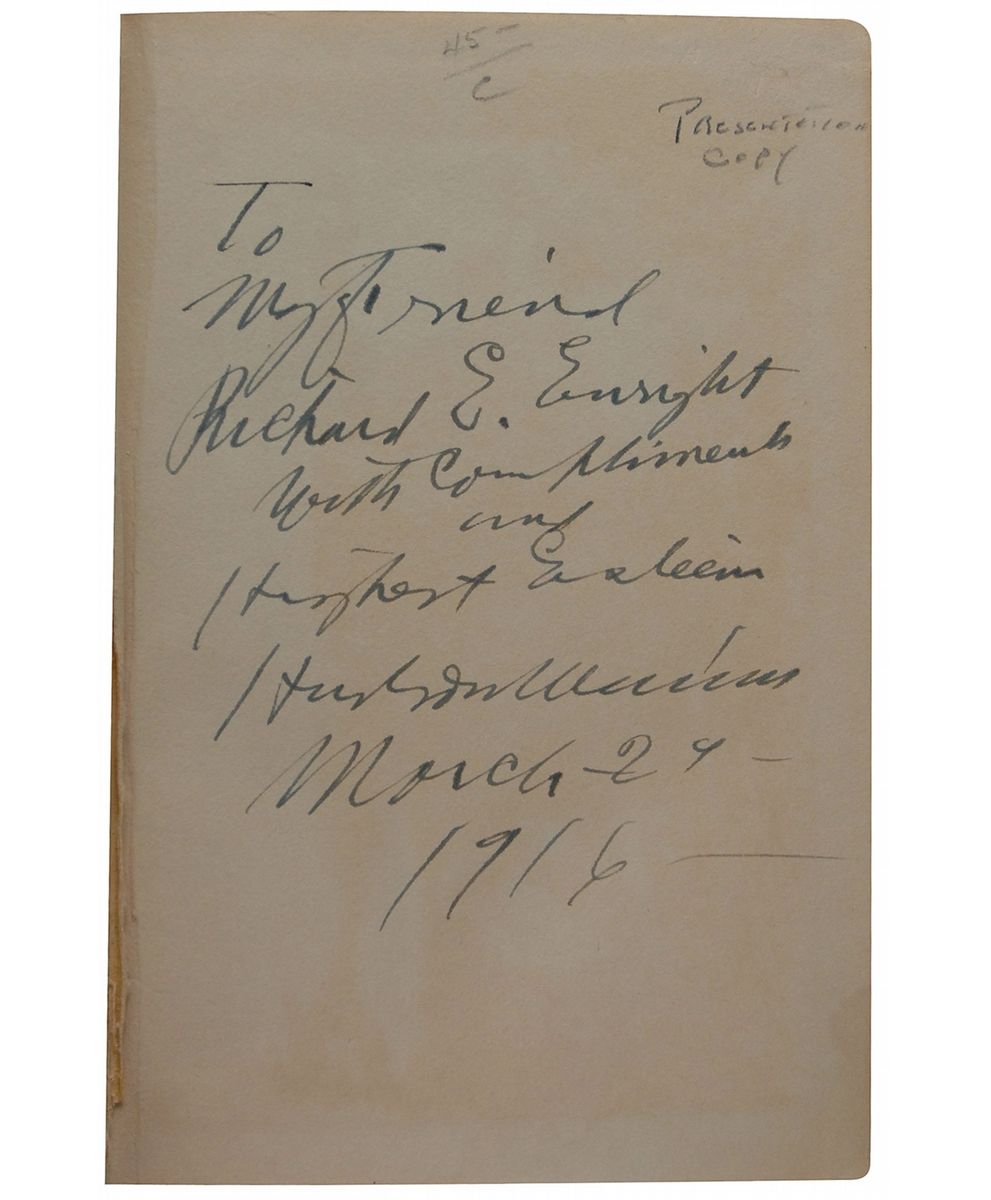 45-
C
Presentation
Copy
To
My Friend
Richard E. Enright
With Compliments
and
Highest Esteem
Hudson Maxim
March 29 -
1916